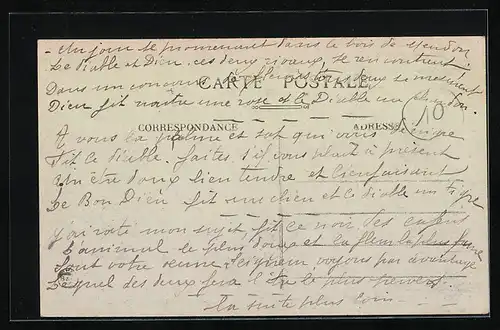 - Un jour se promenant dans le bois de Meudon
Le Diable et Dieu, ces deux rivaux se rencontrèrent
Dans un concours de fleurs tous deux se mesurent
CARTE POSTALE
Dieu fit naître une rose et le Diable un chardon.
10
CORRESPONDANCE
ADRESSE
A vous la palme et sot qui vous
Dit le diable. faites s'il vous plaît à présent
un être doux bien tendre et bienfaisant
Le Bon Dieu fit un chien et le diable un tigre
J'ai raté mon sujet fit ce
L'animal le plus doux et la plus
votre Seigneur voyons par avantage
Lequel des deux fera l'être le plus pervers.
la suite plus loin -